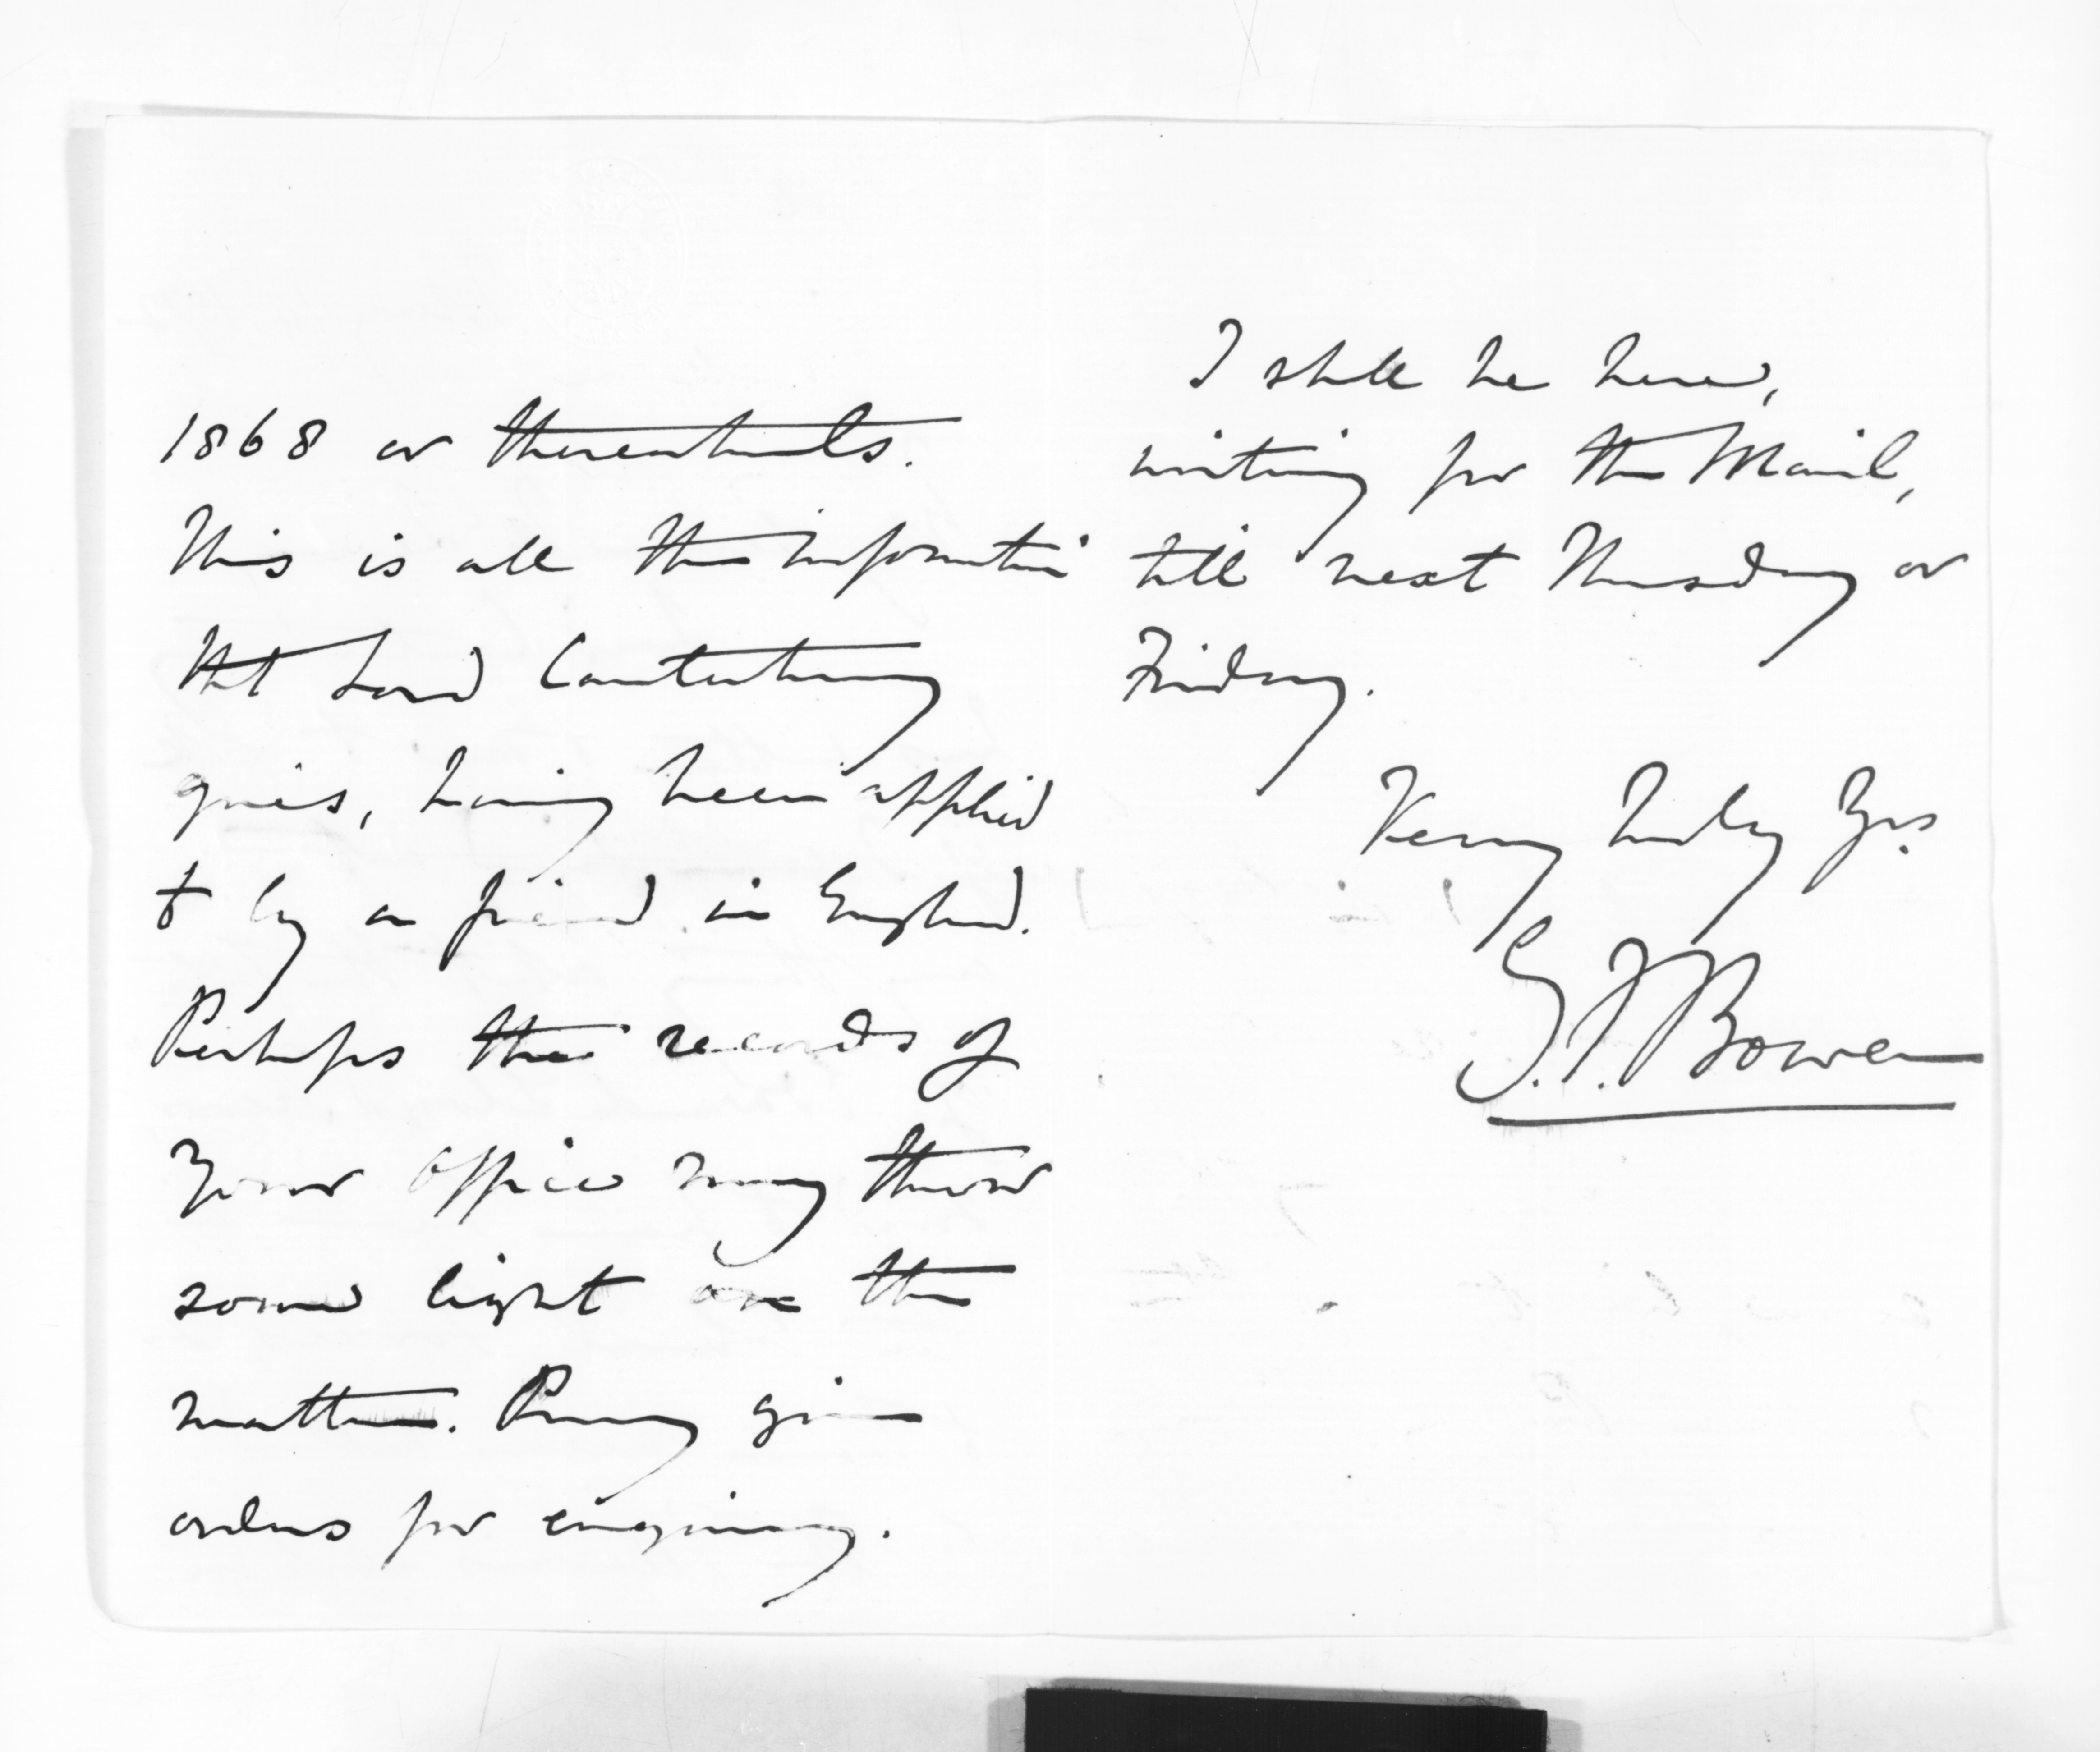 1868 or thereabouts.
This is all the information
that Lord Canterbury
gives, having been applied
to by a friend in England.
Perhaps the records of
Your Office may throw
some light on the
matter. Pray give
orders for enquiry.
I shall be here,
writing for the Mail,
till next Thursday or
Friday.
Very truly Yrs
G. F. Bowen